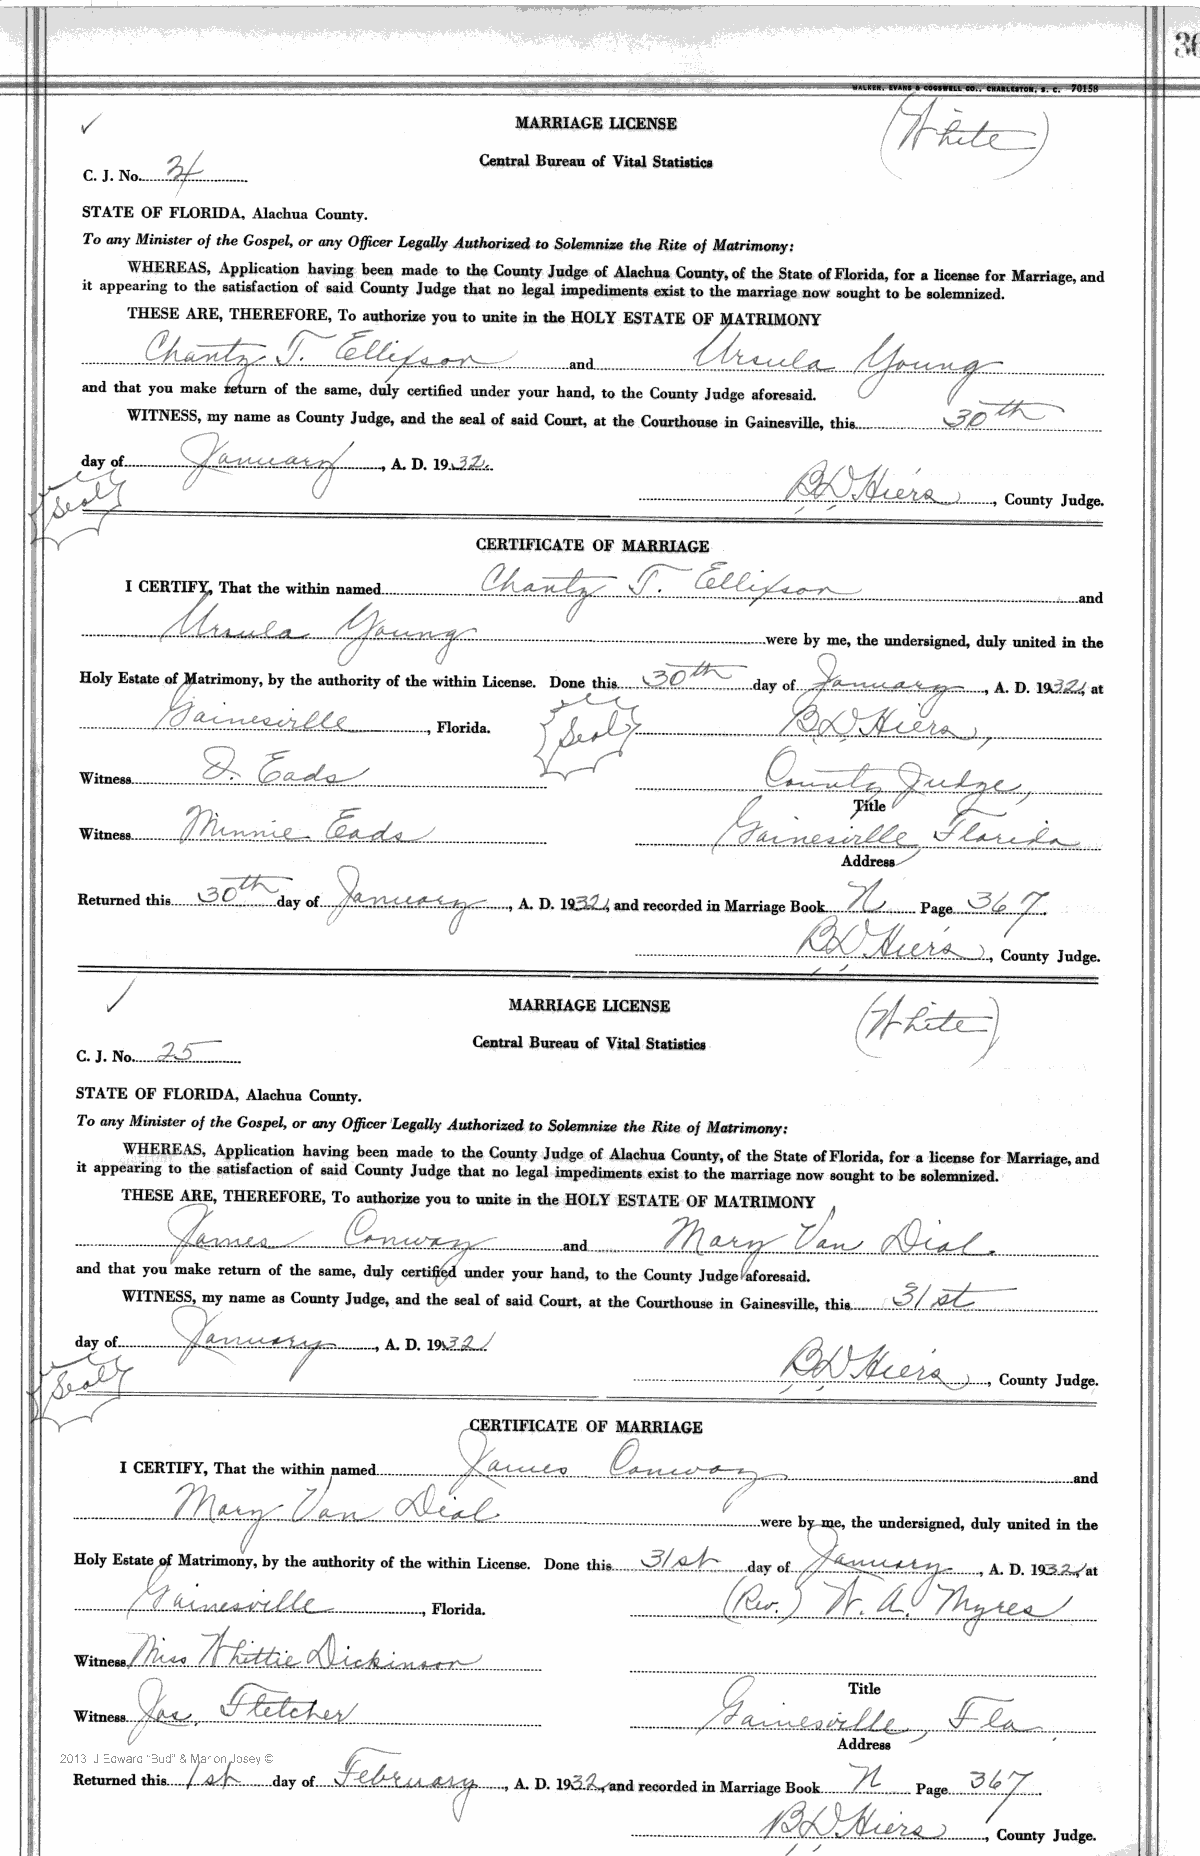 36
WALKER, EVANS & COGSWELL CO., CHARLESTON, S. C. 70158
MARRIAGE LICENSE
(White)
Central Bureau of Vital Statistics
C. J. No.
STATE OF FLORIDA, Alachua County.
To any Minister of the Gospel, or any Officer Legally Authorized to Solemnize the Rite of Matrimony:
WHEREAS, Application having been made to the County Judge of Alachua County, of the State of Florida, for a license for Marriage, and
it appearing to the satisfaction of said County Judge that no legal impediments exist to the marriage now sought to be solemnized.
THESE ARE, THEREFORE, To authorize you to unite in the HOLY ESTATE OF MATRIMONY
Chantz T. Ellixson and Ursula Young
and that you make return of the same, duly certified under your hand, to the County Judge aforesaid.
WITNESS, my name as County Judge, and the seal of said Court, at the Courthouse in Gainesville, this 30th
day of January, A. D. 1932.
Seal
B D Hiers, County Judge.
CERTIFICATE OF MARRIAGE
I CERTIFY, That the within named Chantz T. Ellixson and
Ursula Young were by me, the undersigned, duly united in the
Holy Estate of Matrimony, by the authority of the within License. Done this 30th day of January, A. D. 1932, at
Gainesville, Florida. Seal B D Hiers,
Witness D. Eads County Judge,
Title
Witness Minnie Eads Gainesville, Florida
Address
Returned this 30th day of January, A. D. 1932, and recorded in Marriage Book N Page 367.
B D Hiers, County Judge.
MARRIAGE LICENSE
(White)
Central Bureau of Vital Statistics
C. J. No. 25
STATE OF FLORIDA, Alachua County.
To any Minister of the Gospel, or any Officer Legally Authorized to Solemnize the Rite of Matrimony:
WHEREAS, Application having been made to the County Judge of Alachua County, of the State of Florida, for a license for Marriage, and
it appearing to the satisfaction of said County Judge that no legal impediments exist to the marriage now sought to be solemnized.
THESE ARE, THEREFORE, To authorize you to unite in the HOLY ESTATE OF MATRIMONY
James Conway and Mary Van Dial.
and that you make return of the same, duly certified under your hand, to the County Judge aforesaid.
WITNESS, my name as County Judge, and the seal of said Court, at the Courthouse in Gainesville, this 31st
day of January, A. D. 1932
Seal
B D Hiers, County Judge.
CERTIFICATE OF MARRIAGE
I CERTIFY, That the within named James Conway and
Mary Van Dial were by me, the undersigned, duly united in the
Holy Estate of Matrimony, by the authority of the within License. Done this 31st day of January, A. D. 1932, at
Gainesville, Florida. (Rev.) W. A. Myres
Witness Miss Whittie Dickinson
Title
Witness Jas. Fletcher Gainesville, Fla.
Address
2013 J Edward "Bud" & Marion Josey ©
Returned this 1st day of February, A. D. 1932, and recorded in Marriage Book N Page 367
B D Hiers, County Judge.